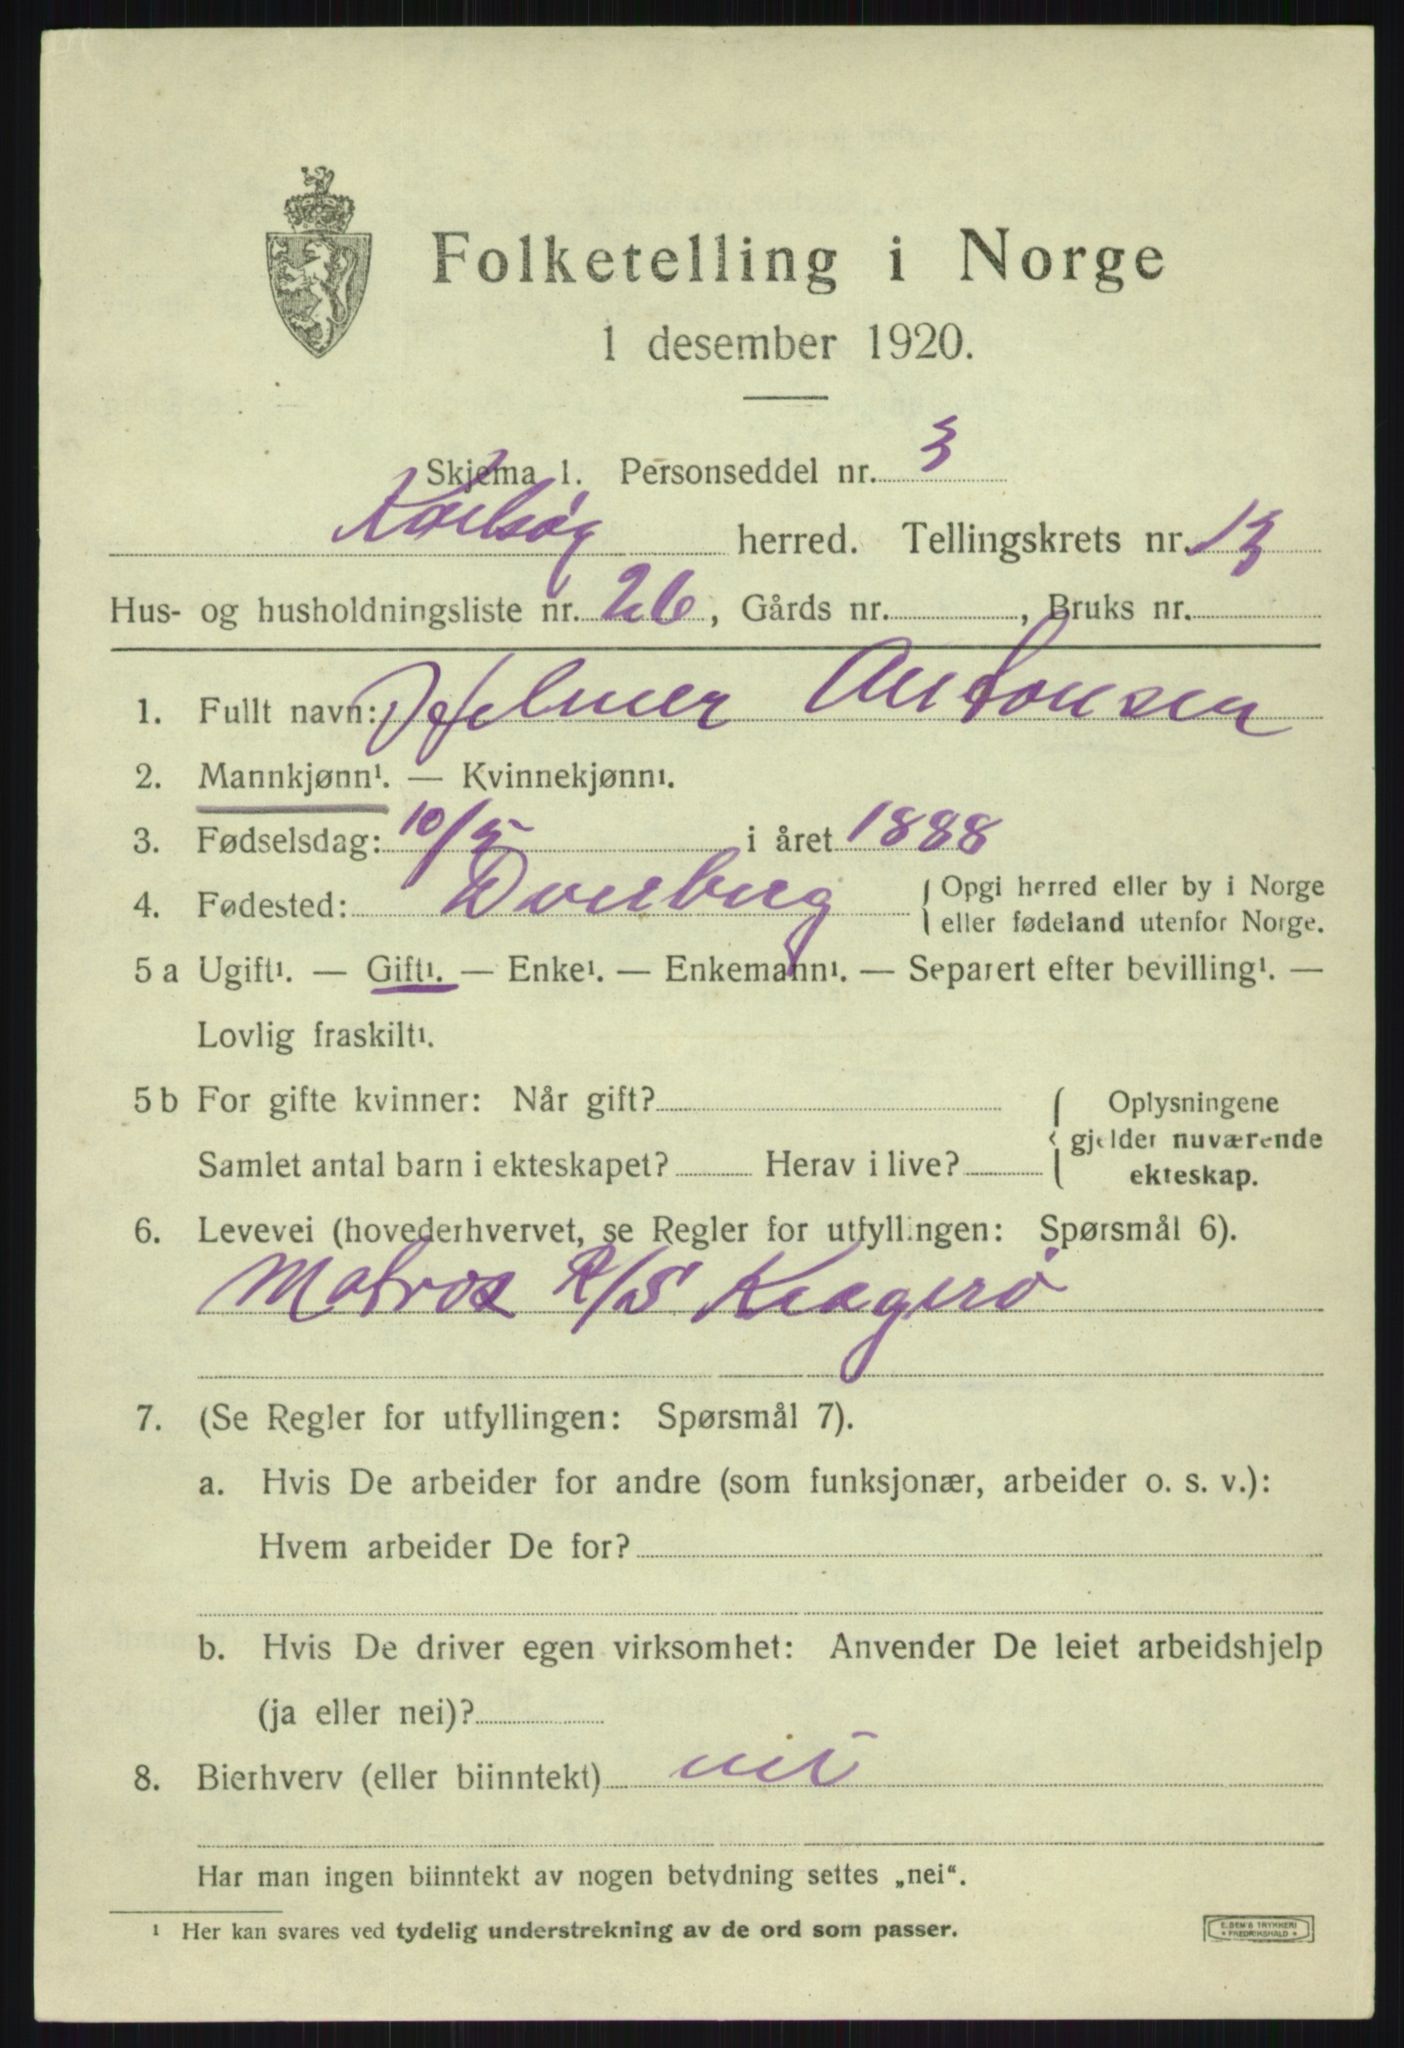 Folketelling i Norge
1 desember 1920.
Skjema 1. Personseddel nr. 3
Karlsøy herred. Tellingskrets nr. 13
Hus- og husholdningsliste nr. 26, Gårds nr. , Bruks nr.
1. Fullt navn: Hjelmer Antonsen
2. Mannkjønn¹. — Kvinnekjønn¹.
3. Fødselsdag: 10/5 i året 1888
4. Fødested: { Opgi herred eller by i Norge
eller fødeland utenfor Norge.
5 a Ugift¹. — Gift¹. — Enke¹. — Enkemann¹. — Separert efter bevilling¹. —
Lovlig fraskilt¹.
5 b For gifte kvinner: Når gift? { Oplysningene
gjelder nuværende
Samlet antal barn i ekteskapet? Herav i live? ekteskap.
6. Levevei (hovederhvervet, se Regler for utfyllingen: Spørsmål 6).
Matros R/S Kragerö
7. (Se Regler for utfyllingen: Spørsmål 7).
a. Hvis De arbeider for andre (som funksjonær, arbeider o. s. v.):
Hvem arbeider De for?
b. Hvis De driver egen virksomhet: Anvender De leiet arbeidshjelp
(ja eller nei)?
8. Bierhverv (eller biinntekt) nei
Har man ingen biinntekt av nogen betydning settes „nei“.
¹ Her kan svares ved tydelig understrekning av de ord som passer.
E. SEM'S TRYKKERI
* FREDRIKSHALD *